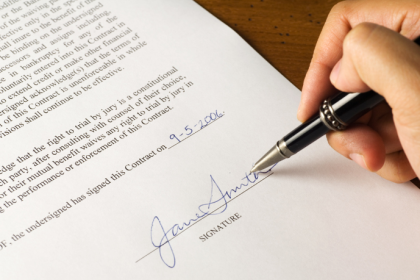 of the waiving
shall inure to the benefit of
be binding on the undersigned
and assigns
and for any of the
in bankruptcy of any
voluntarily entered into this Contract in
to extend credit or make other financial
acknowledge(s) that the terms of
of this Contract is unenforceable in whole
visions shall continue to be effective.
edge that the right to trial by jury is a constitutional
ch party, after consulting with counsel of their choice,
or their mutual benefit waives any right to trial by jury in
g the performance or enforcement of this Contract
OF, the undersigned has signed this Contract on 9-5-2006
Jane Smith
SIGNATURE